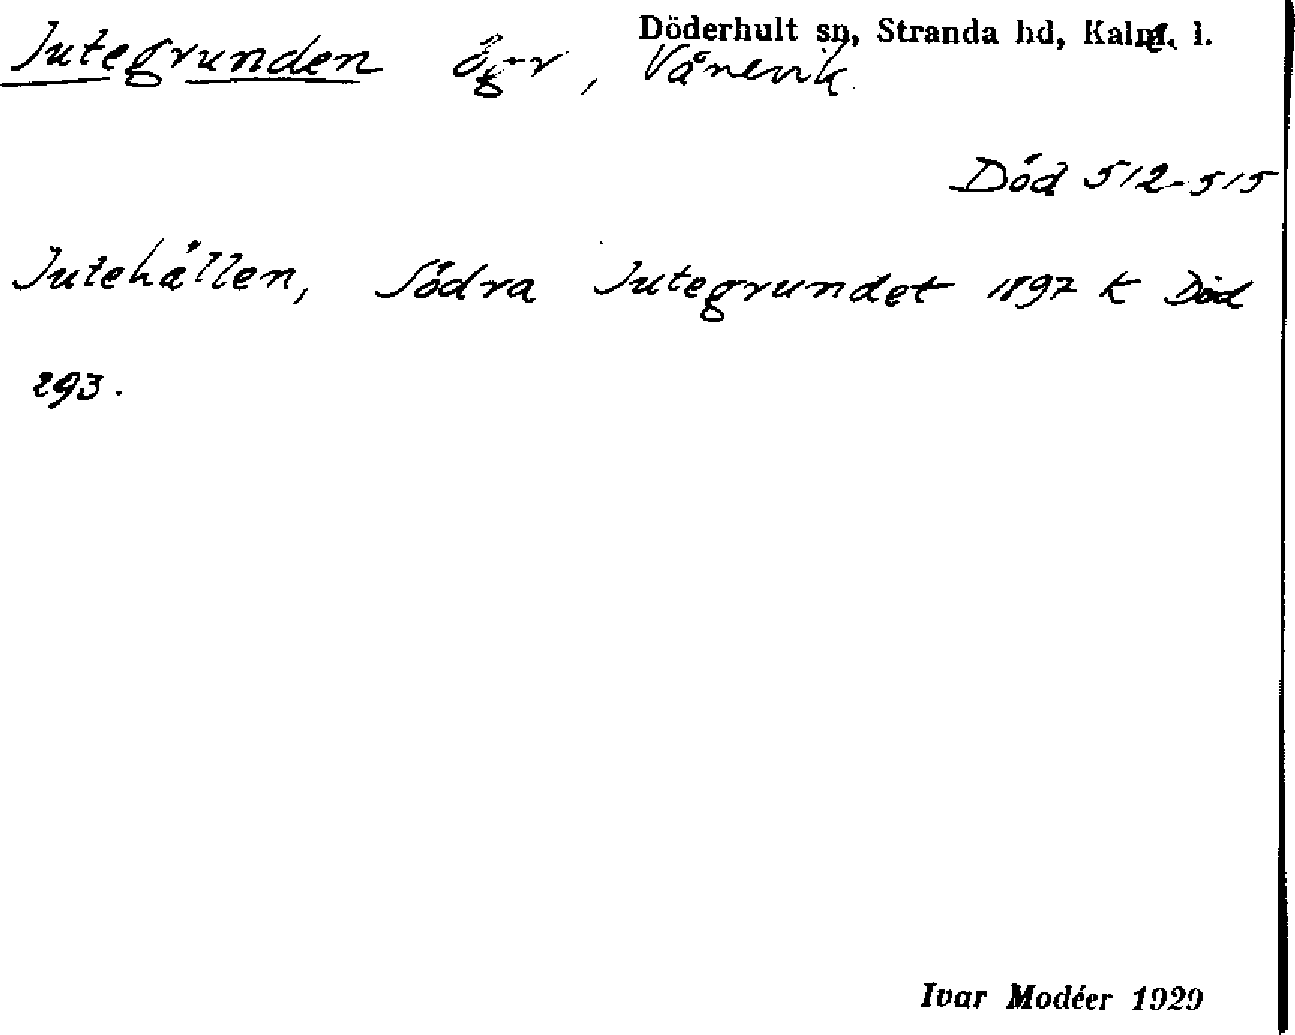 Döderhult sn, Stranda hd, Kalm. l.
Jutegrunden ögr, Vånevik.
Död 512-515
Jutehällen, Södra Jutegrundet 1897 k Död
293.
Ivar Modéer 1929